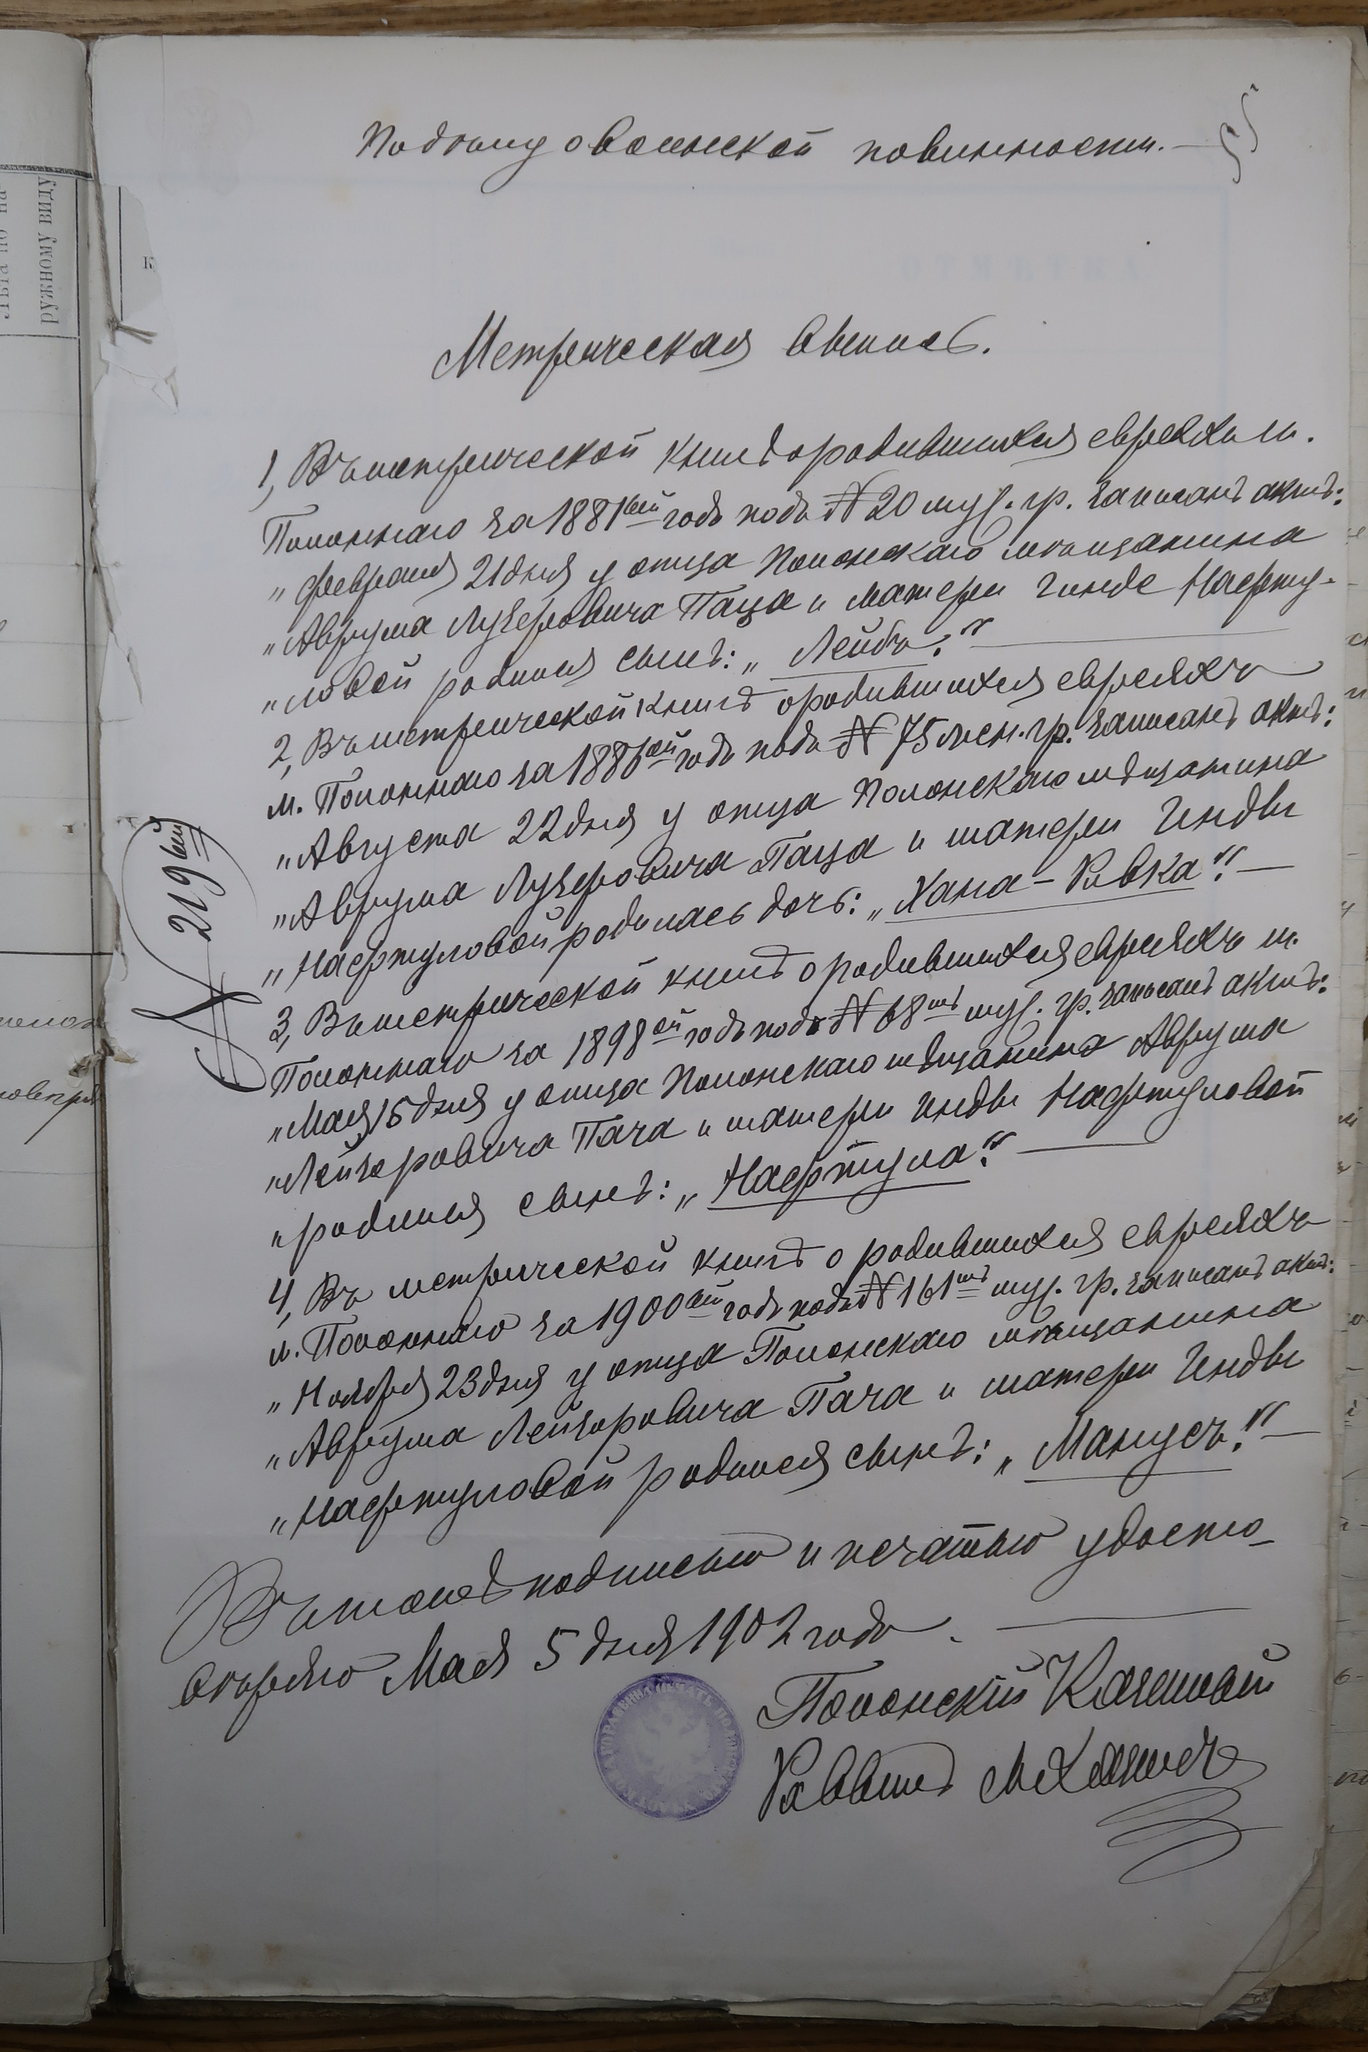 По дѣлу о воинской повинности. —
95
Метрическая Выпись.
1, Въ метрической книгѣ о родившихся евреяхъ м.
Полоннаго за 1881ый годъ подъ № 20 муж. гр. записанъ актъ:
„Февраля 21 дня у отца Полонскаго мѣщанина
„Аврума Лузеровича Паца и матери Гинде Нафту-
„ловой родился сынъ: „Лейбъ."
2, Въ метрической книгѣ о родившихся евреяхъ
м. Полоннаго за 1886ой годъ подъ № 75 жен. гр. записанъ актъ:
„Августа 22 дня у отца Полонскаго мѣщанина
„Аврума Лузеровича Паца и матери Гинды
„Нафтуловой родилась дочь: „Хана-Ривка". —
3, Въ метрической книгѣ о родившихся евреяхъ м.
Полоннаго за 1898ой годъ подъ № 68мъ муж. гр. записанъ актъ:
„Мая 15 дня у отца Полонскаго мѣщанина Аврума
„Лейзеровича Пача и матери Гинды Нафтуловой
„родился сынъ: „Нафтула." —
4, Въ метрической книгѣ о родившихся евреяхъ
м. Полоннаго за 1900ый годъ подъ № 161мъ муж. гр. записанъ актъ:
„Ноября 23 дня у отца Полонскаго мѣщанина
„Аврума Лейзоровича Пача и матери Гинды
„Нафтуловой родился сынъ: „Манусъ." —
№ 219ый
Въ томъ подписью и печатью удосто-
вѣряю Мая 5 дня 1902 года.
Полонскій Казенный
Раввинъ